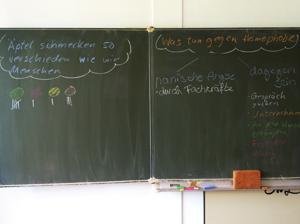 Äpfel schmecken so
verschieden wie wir
Menschen
Was tun gegen Homophobie
panische Angst
• durch Fachkräfte
dagegen
sein
• Gespräch
suchen